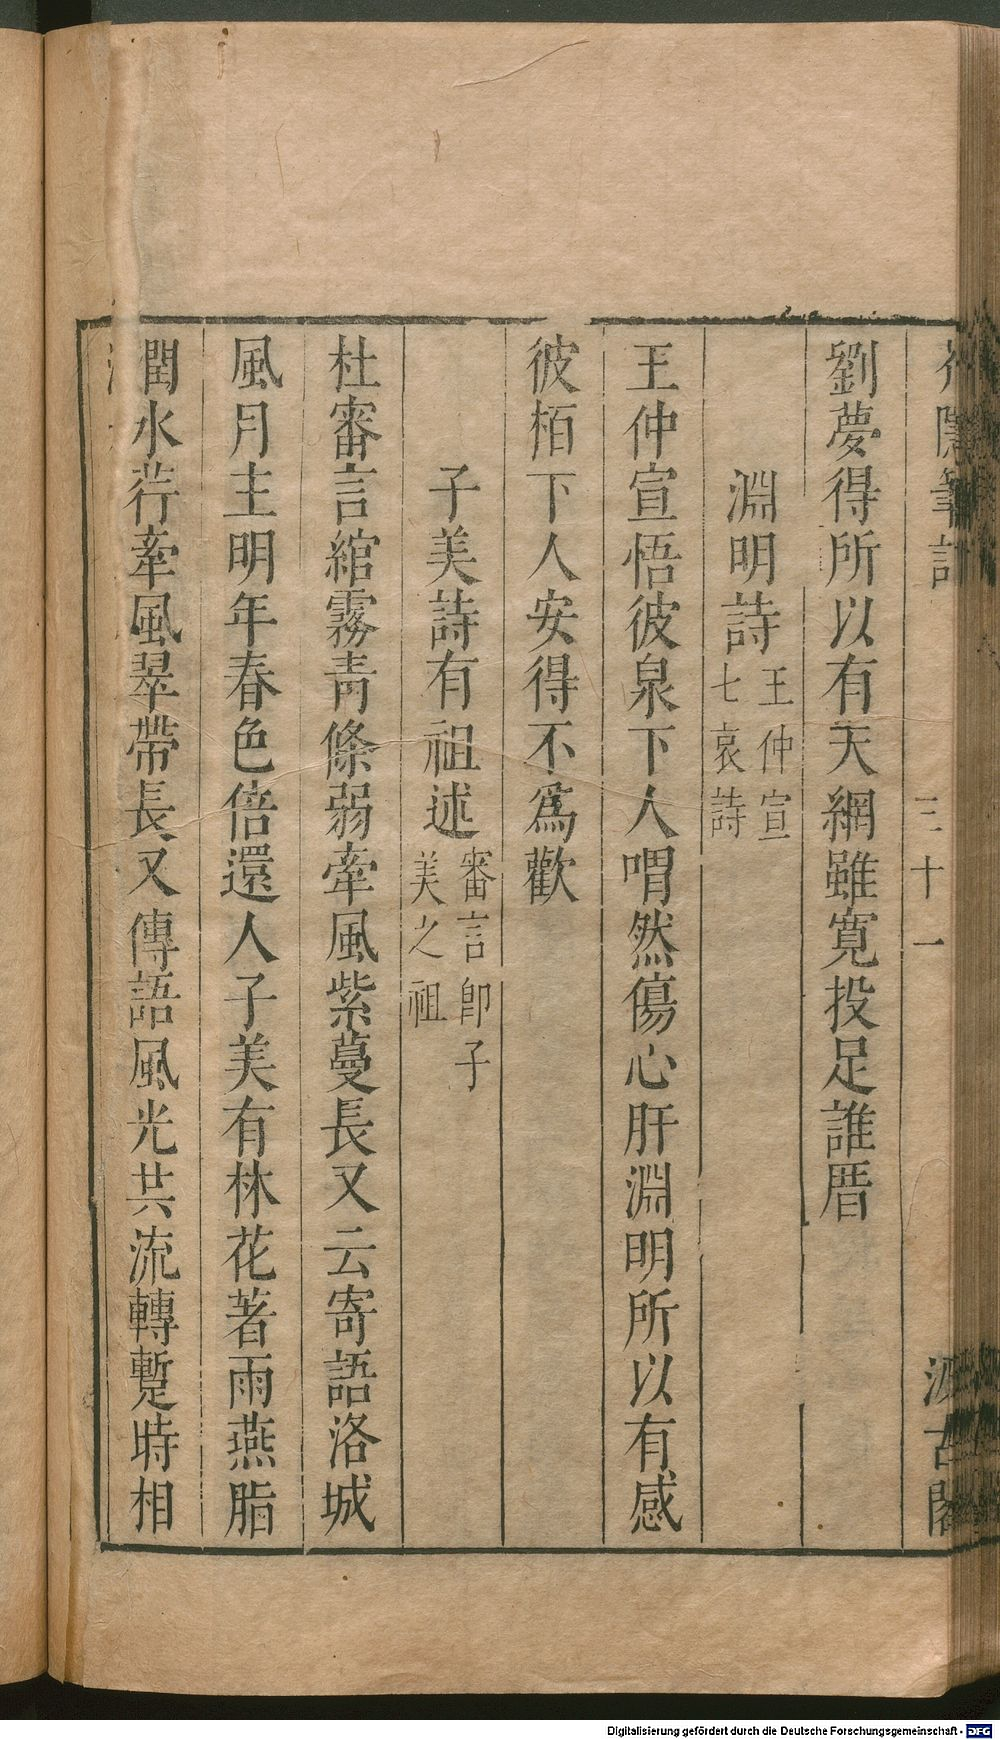 筆記
三十一
古閣
劉夢得所以有天網雖寬投足誰厝
淵明詩王仲宣七哀詩
王仲宣悟彼泉下人喟然傷心肝淵明所以有感
彼栢下人安得不爲歡
子美詩有祖述審言卽子美之祖
杜審言綰霧靑條弱牽風紫蔓長又云寄語洛城
風月主明年春色倍還人子美有林花著雨燕脂
閏水荇牽風翠帶長又傳語風光共流轉蹔時相
Digitalisierung gefördert durch die Deutsche Forschungsgemeinschaft - DFG